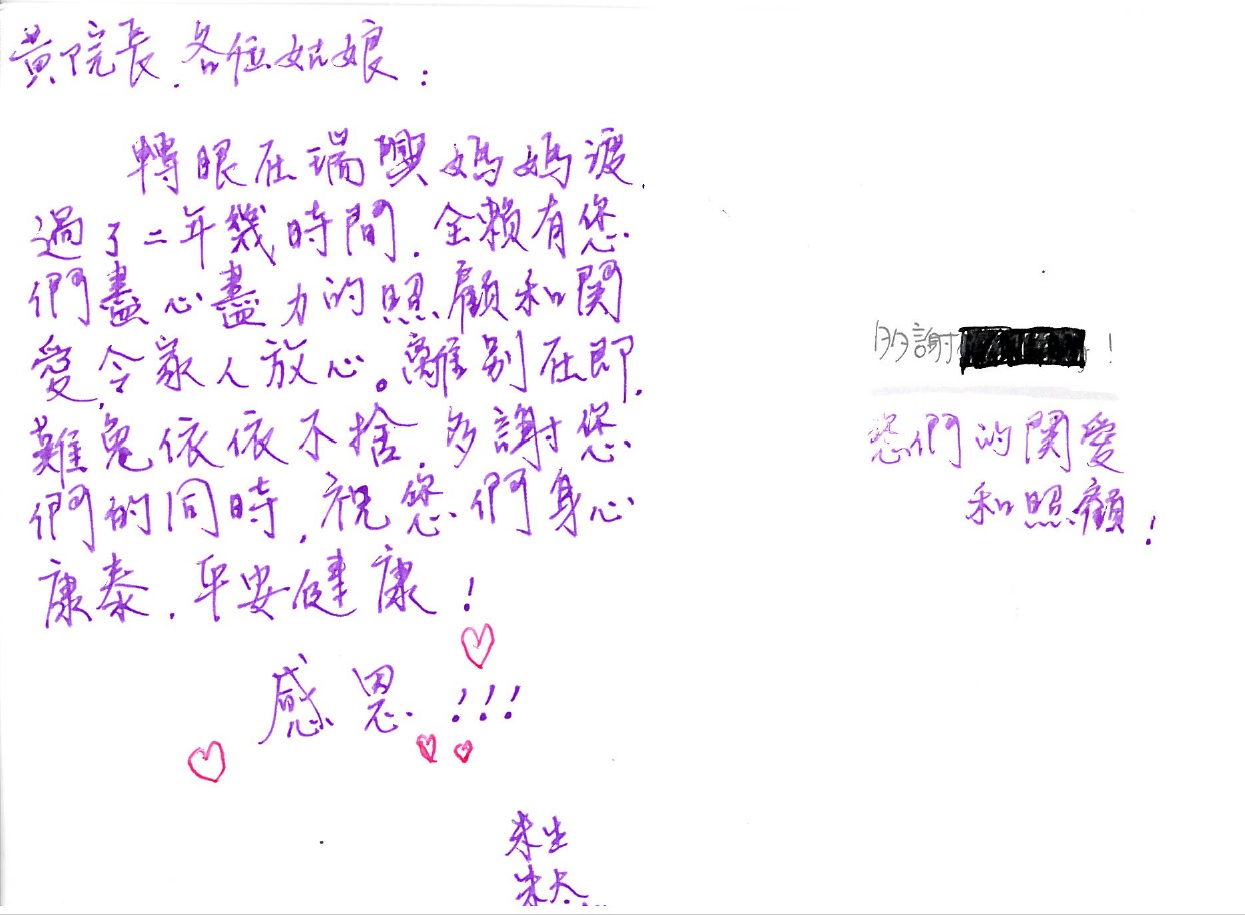 黃院長.各位姑娘:
轉眼在瑞興媽媽渡
過了二年幾時間.全賴有您
們盡心盡力的照顧和関
愛,令家人放心。離別在即,
難免依依不捨.多謝您
們的同時,祝您們身心
康泰.平安健康!
感恩!!!
朱生
朱太
多謝 !
您們的関愛
和照顧!